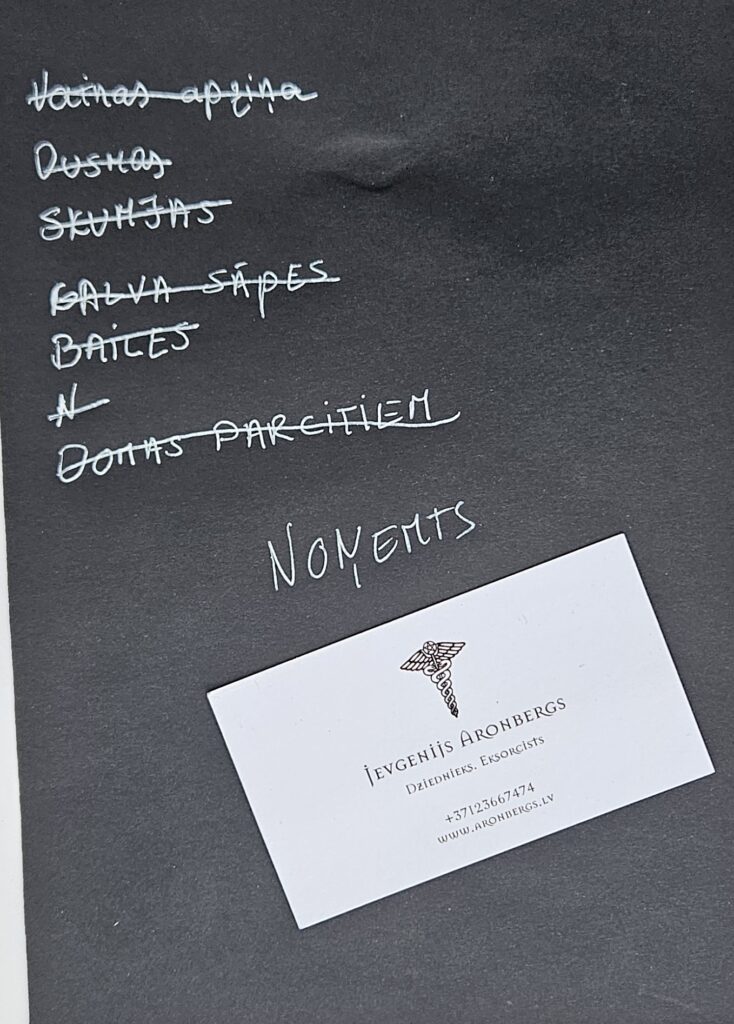 Vainas apziņa
Dusmas
SKUMJAS
GALVA SĀPES
BAiLES
N
DOMAS PARCITIEM
NOŅEMTS
Jevgenijs Aronbergs
Dziednieks. Eksorcists
+37123667474
www.aronbergs.lv